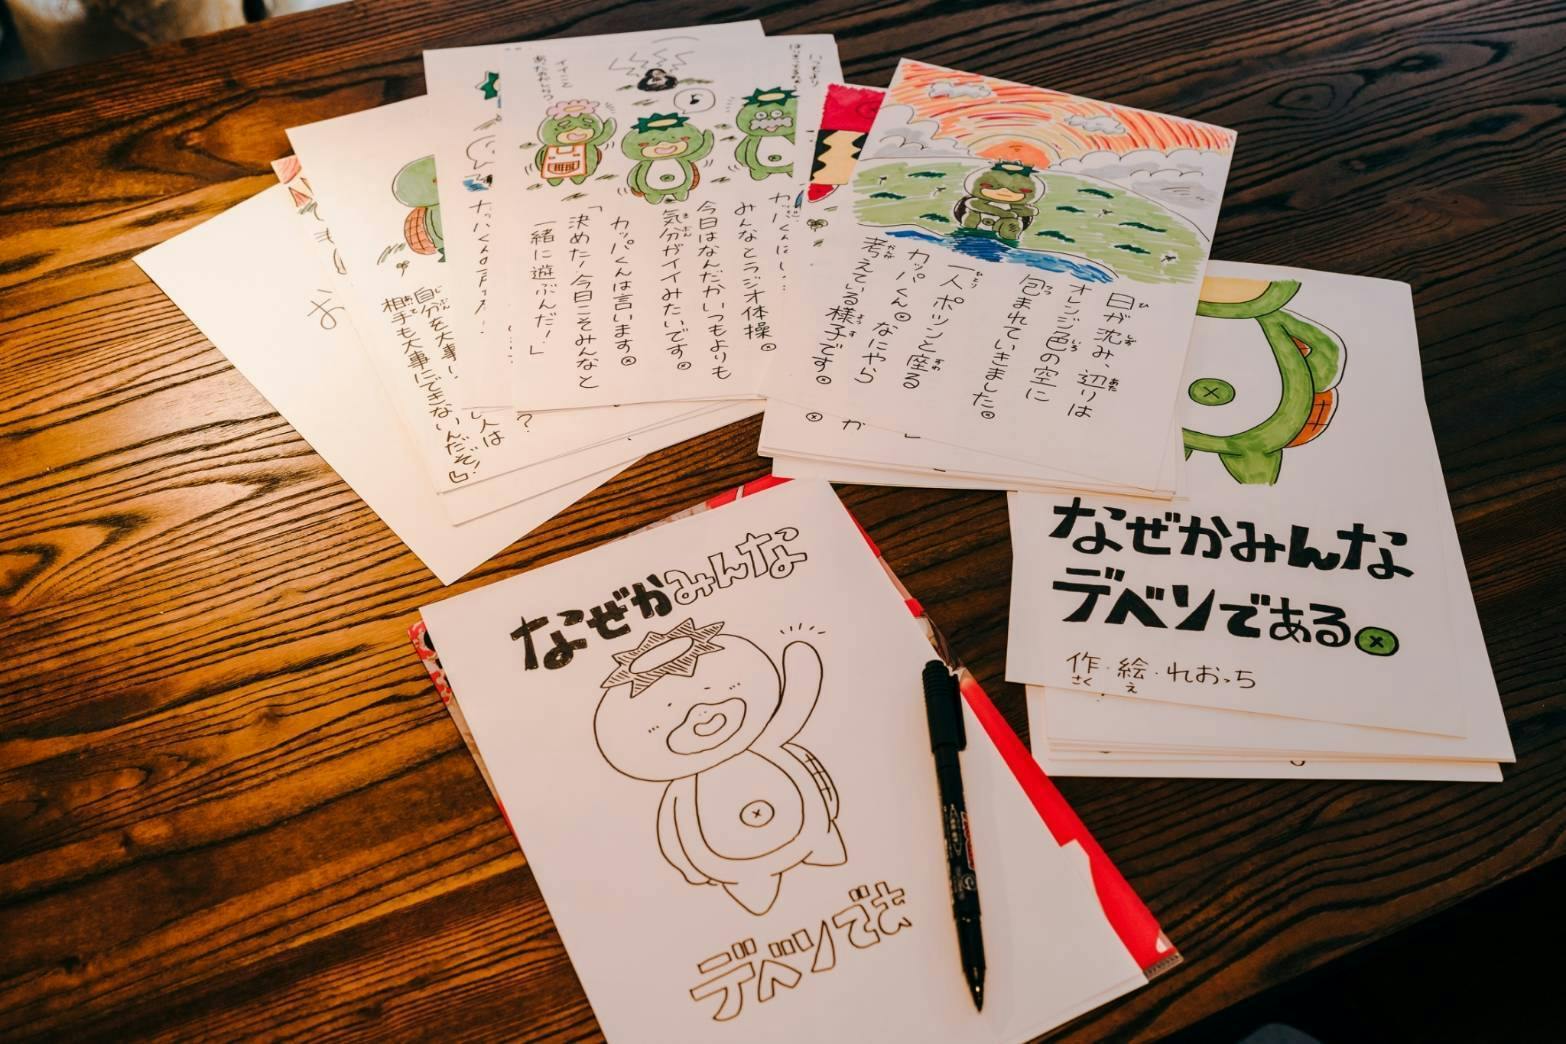 イイこと
あったかな？
カッパくんは
みんなとラジオ体操。
今日はなんだかいつもよりも
気分がイイみたいです。
カッパくんは言います。
「決めた！今日こそみんなと
一緒に遊ぶんだ！」
自分を大事に
人は
相手も大事にできないんだぞ！』
お
日が沈み、辺りは
オレンジ色の空に
包まれていきました。
一人ポツンと座る
カッパくん。なにやら
考えている様子です。
なぜかみんな
デベソである。
作・絵・れおっち
さく え
なぜかみんな
デベソでま